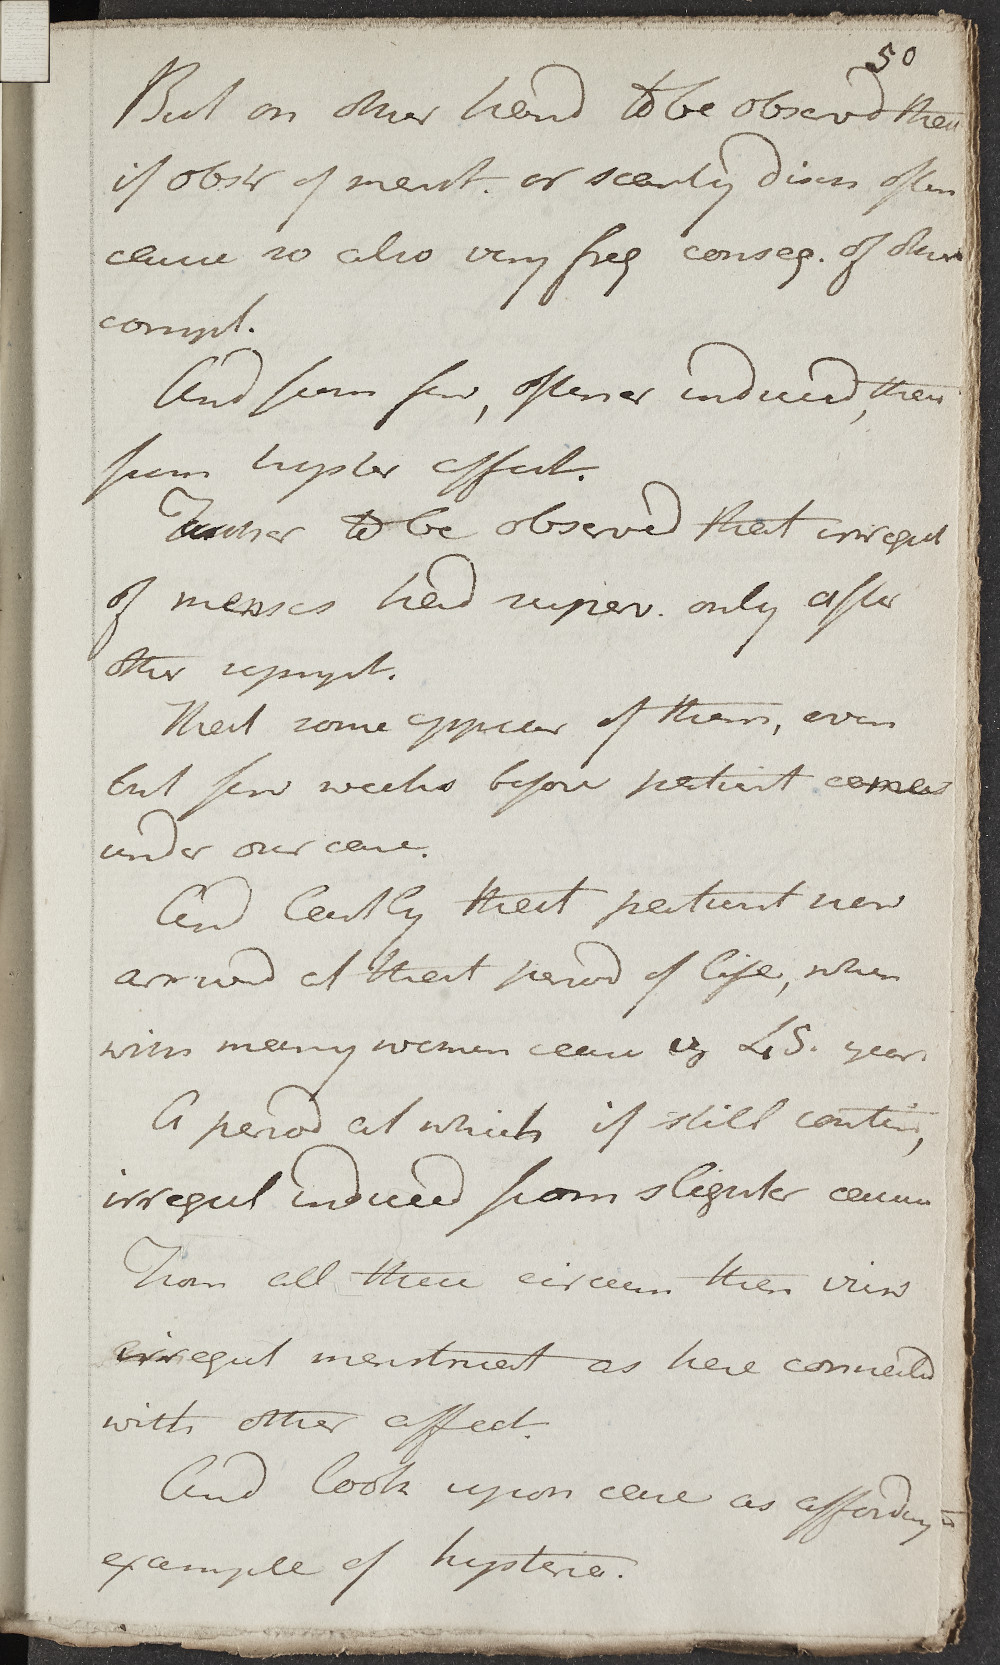 50
But on other hand to be observd then
if obstr of menst. or scanty disch often
cause so also very freq conseq. of other
compl.
And from few, oftener induced, than
from hyster affect.
Further to be observed that irregul
of menses had superv. only after
other sympt.
That some appear of them, even
but few weeks before patient comes
under our care.
And lastly that patient now
arrived at that period of life, when
with many women cease 45. year
A period at which if still contin,
irregul induced from slighter causes
From all these circum then view
irregul menstruat as here connected
with other affect.
And look upon case as affording
example of hysteria.